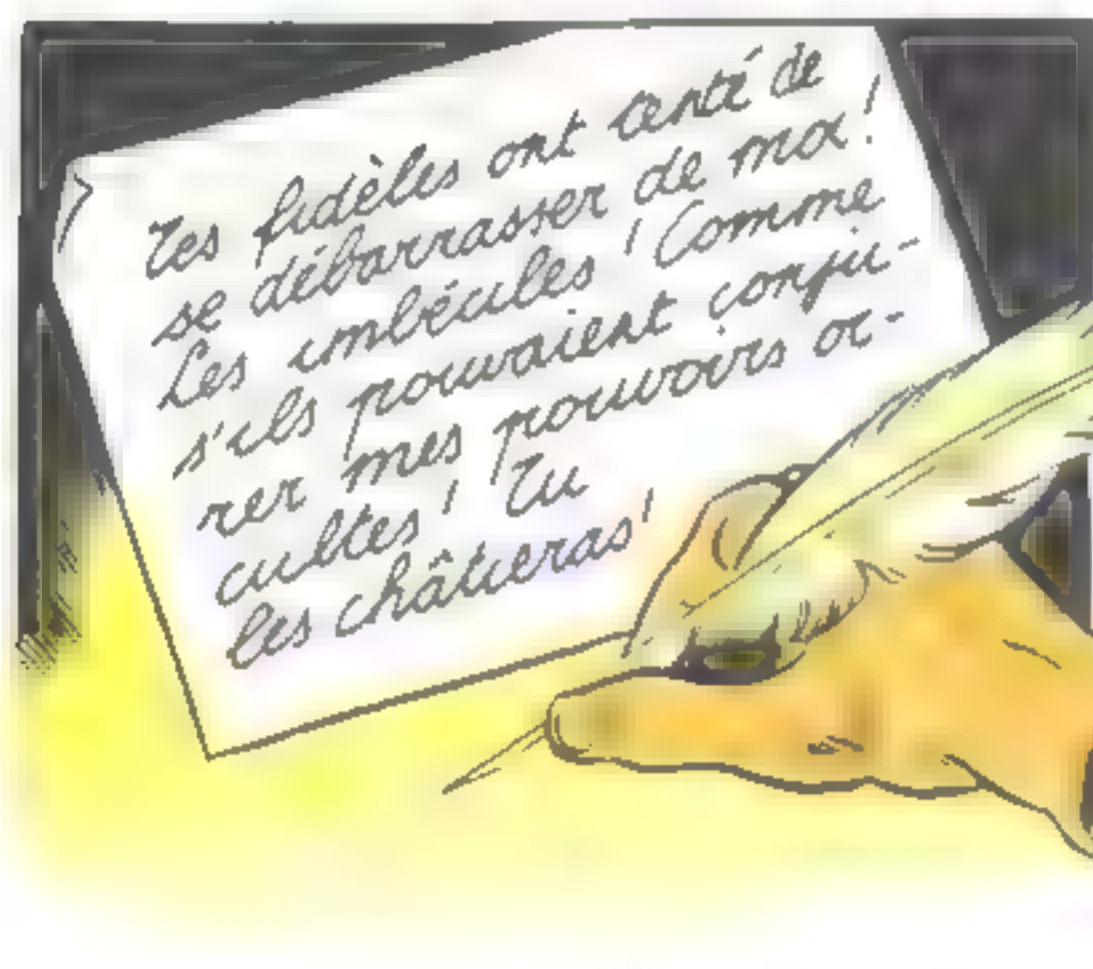 Tes fidèles ont tenté de
se débarrasser de moi!
Les imbéciles! Comme
s'ils pouvaient conju-
rer mes pouvoirs oc-
cultes! Tu
les châtieras!